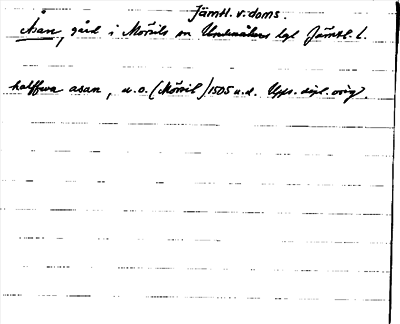 Jämtl. v. doms.
Åsan, gård i Mörsils sn Undersåkers tgl Jämtl. l.
halffwa asan, u.o. (Mörsil) 1505 u.d. Upps. dipl. orig.